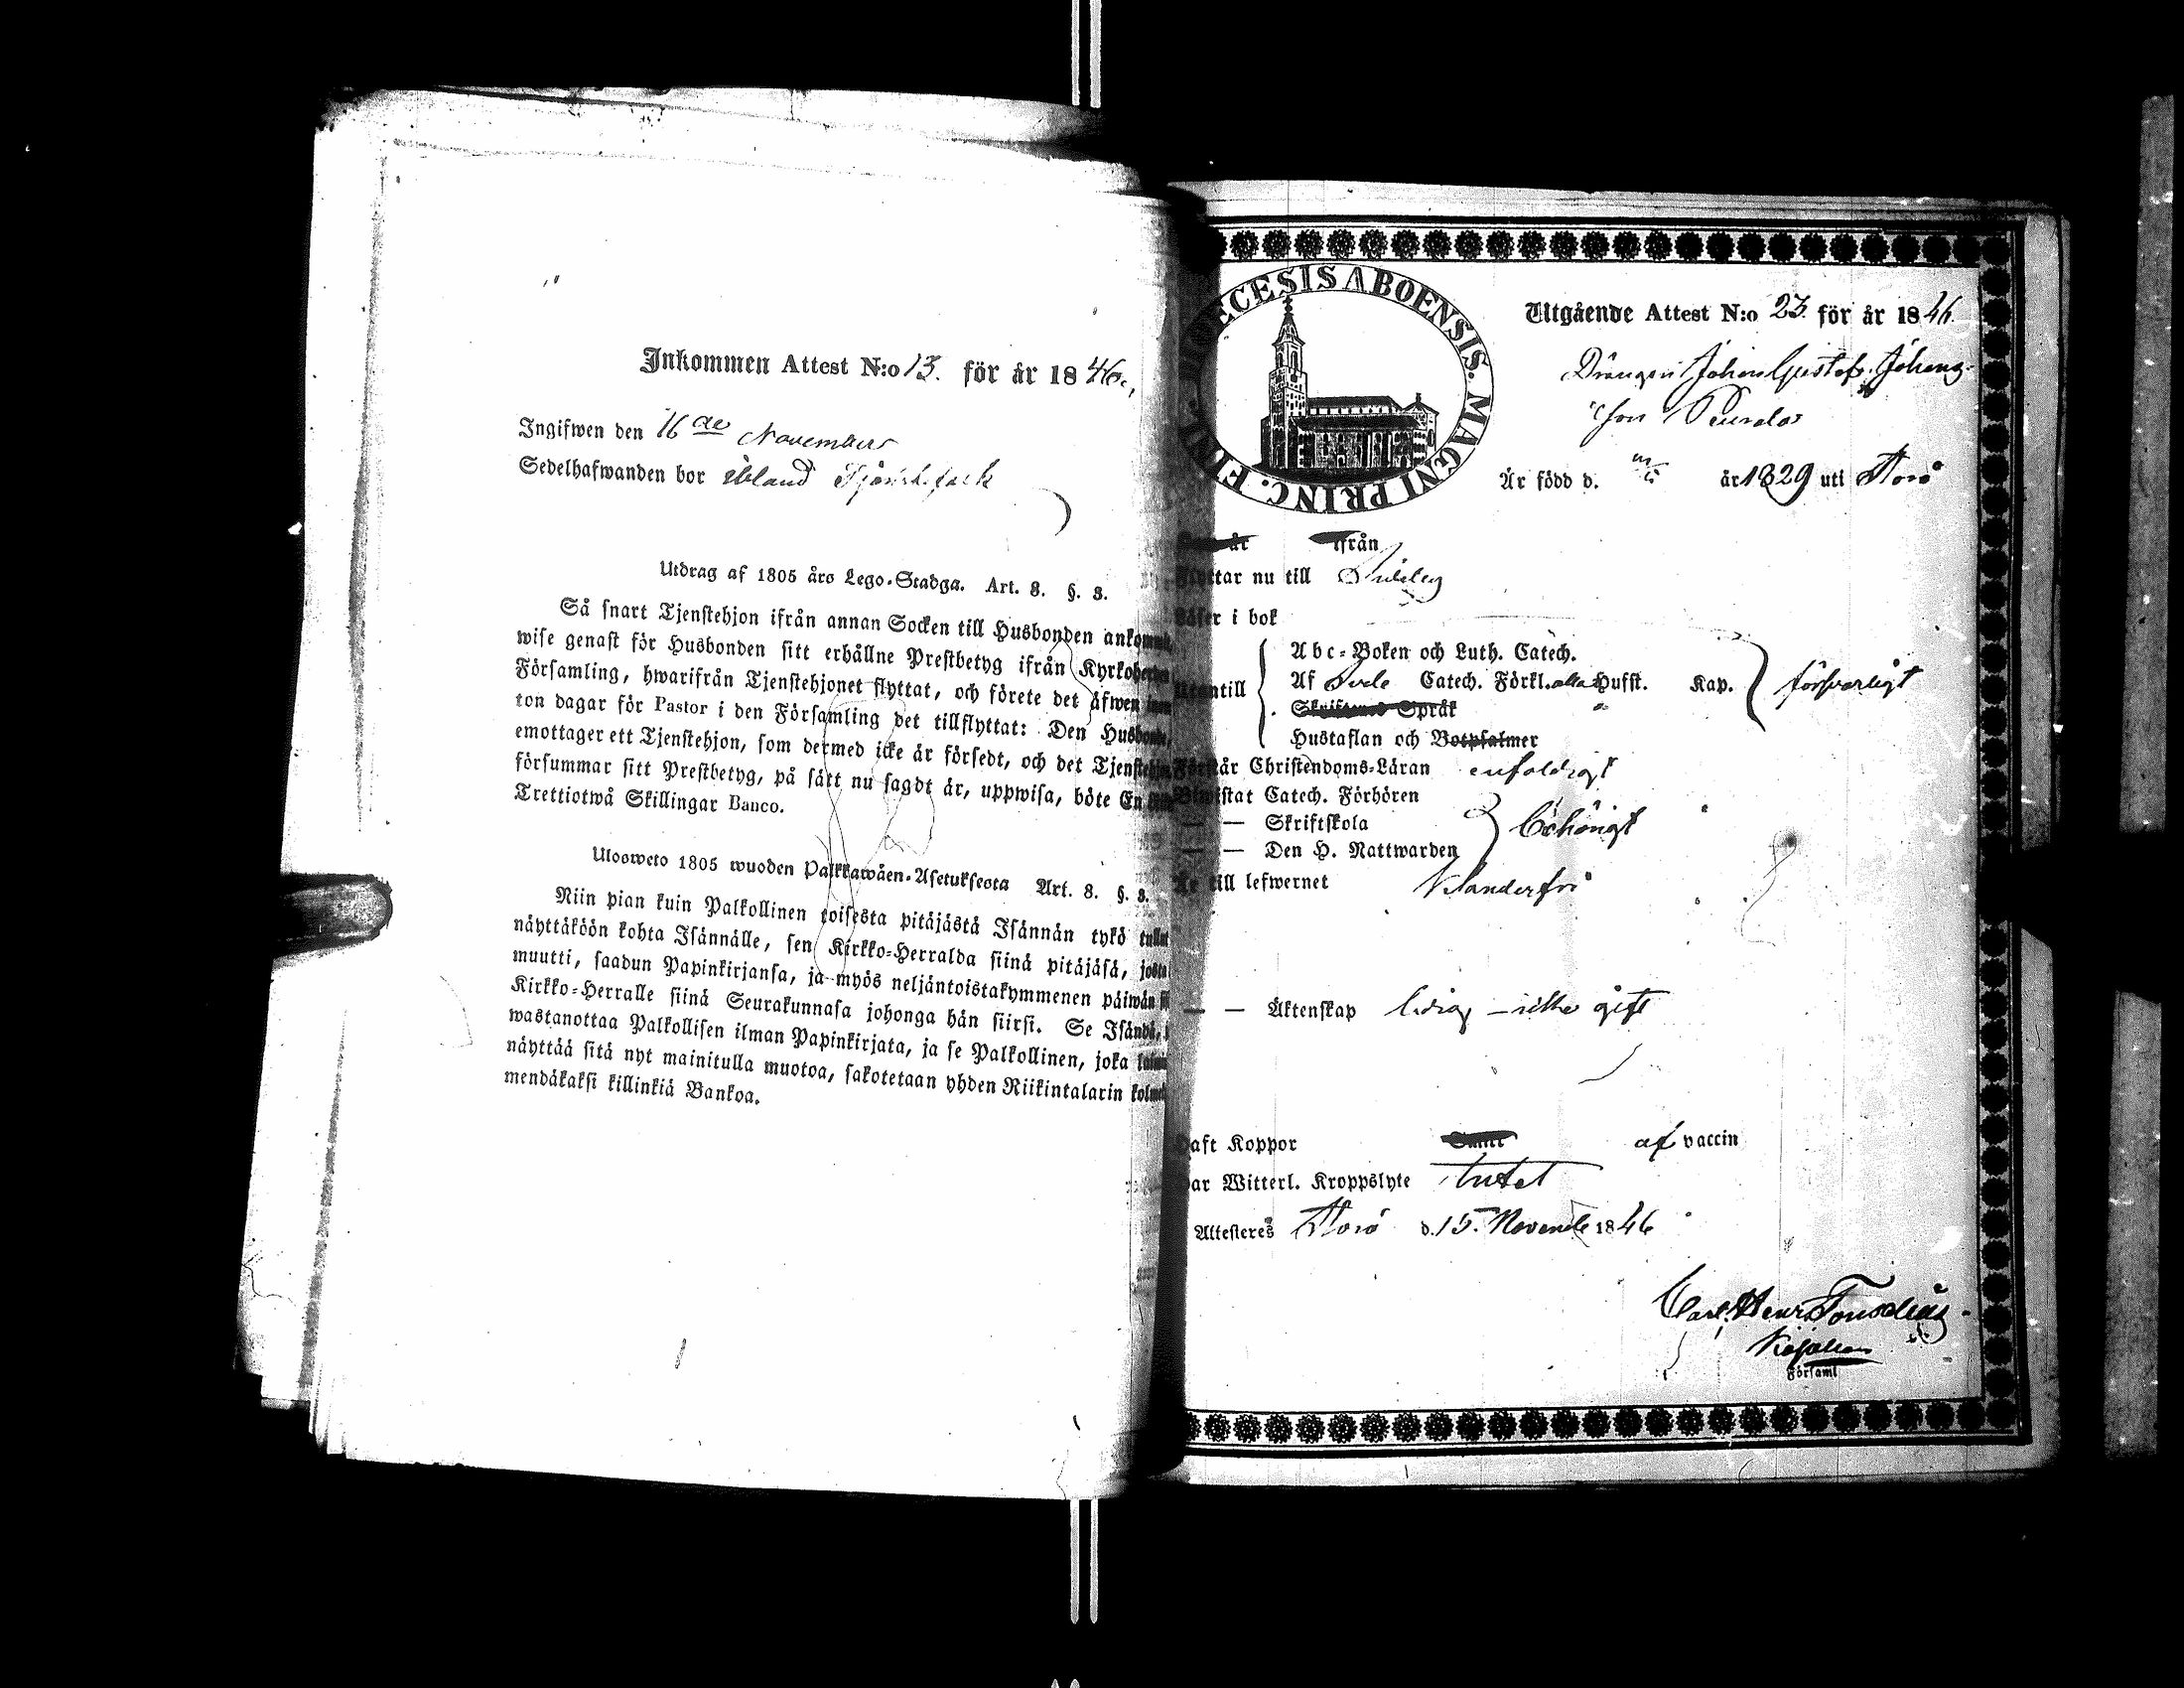 Inkommen Attest N:o 13. för år 1846.
Ingifwen den 16de November
Sedelhafwanden bor ibland Tjenstefolk
Utdrag af 1805 års Lego-Stadga. Art. 8. §. 3.
Så snart Tjenstehjon ifrån annan Socken till Husbonden ankommit,
wise genast för Husbonden sitt erhållne Prestbetyg ifrån
Församling, hwarifrån Tjenstehjonet flyttat, och förete det äfwen
ton dagar för Pastor i den Församling det tillflyttat: Den Husbonde,
emottager ett Tjenstehjon, som dermed icke är försedt, och det Tjenstehjon
försummar sitt Prestbetyg, på sätt nu sagdt är, uppwisa, böte En
Trettiotwå Skillingar Banco.
Ulosweto 1805 wuoden Palkkawäen-Asetuksesta Art. 8. §. 3.
Niin pian kuin Palkollinen toisesta pitäjästä Isännän tykö tullut
näyttäköön kohta Isännälle, sen Kirkko-Herralda siinä pitäjäsä, josta
muutti, saadun Papinkirjansa, ja myös neljäntoistakymmenen päiwän
Kirkko-Herralle siinä Seurakunnasa johonga hän siirsi. Se Isändä,
wastanottaa Palkollisen ilman Papinkirjata, ja se Palkollinen, joka
näyttää sitä nyt mainitulla muotoa, sakotetaan yhden Riikintalarin
mendäkaksi killinkiä Bankoa.
DIOECESIS ABOENSIS. MAGNI PRINC.
Utgående Attest N:o 23 för år 1846.
Drängen Johan Gustaf Johans-
son
Är född d. år 1829 uti Korpo
år ifrån
Flyttar nu till
Läser i bok
Abc-Boken och Luth. Catech.
Utantill Af Catech. Förkl. alla Hufst. Kap. försvarligt
Skriftenes Språk
Hustaflan och Botpsalmer
Förstår Christendoms-Läran enfaldigt
Biwistat Catech. Förhören
— — Skriftskola behörigt
— — Den H. Nattwarden
Är till lefwernet klanderfri
— — Äktenskap ledig – icke gift
Haft Koppor af vaccin
Har Witterl. Kroppslyte intet
Attesteres d. 15. November 1846
Carl Henr.
Församl